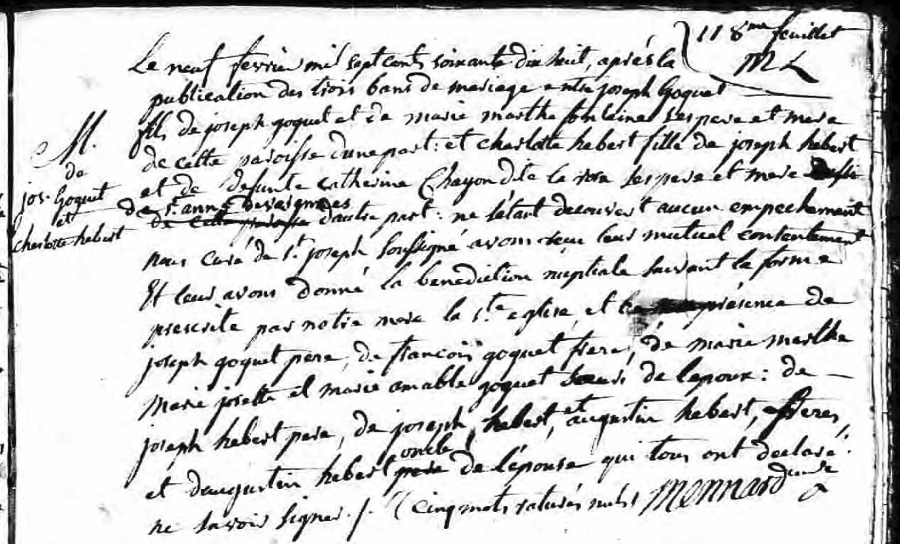 118me feuillet
ML
Le neuf fevrier mil sept cents soixante dix huit, après la
publication des trois bans de mariage entre joseph Goquet
fils de joseph goquet et de marie marthe fontaine ses pere et mere
de cette paroisse d'une part: et charlotte hebert fille de joseph hebert
et de defunte catherine Chayon dite la rose ses pere et mere
de ste anne de varennes
de cette paroisse d'autre part: ne s'étant decouvert aucun empechement
nous curé de st joseph soussigné avons reçu leur mutuel consentement
Et leur avons donné la benediction nuptiale suivant la forme
prescrite par notre mere la ste eglise, et présence de
joseph goquet pere, de françois goquet frere, de marie marthe
marie josette et marie amable goquet soeurs de l'epoux: de
joseph hebert pere, de joseph hebert, et augustin hebert, freres,
et d'augustin hebert oncle de l'épouse qui tous ont declaré
ne savoir signer ./. (cinq mots raturés nuls) Mennard
M.
de
jos. Goquet
et
charlotte hebert